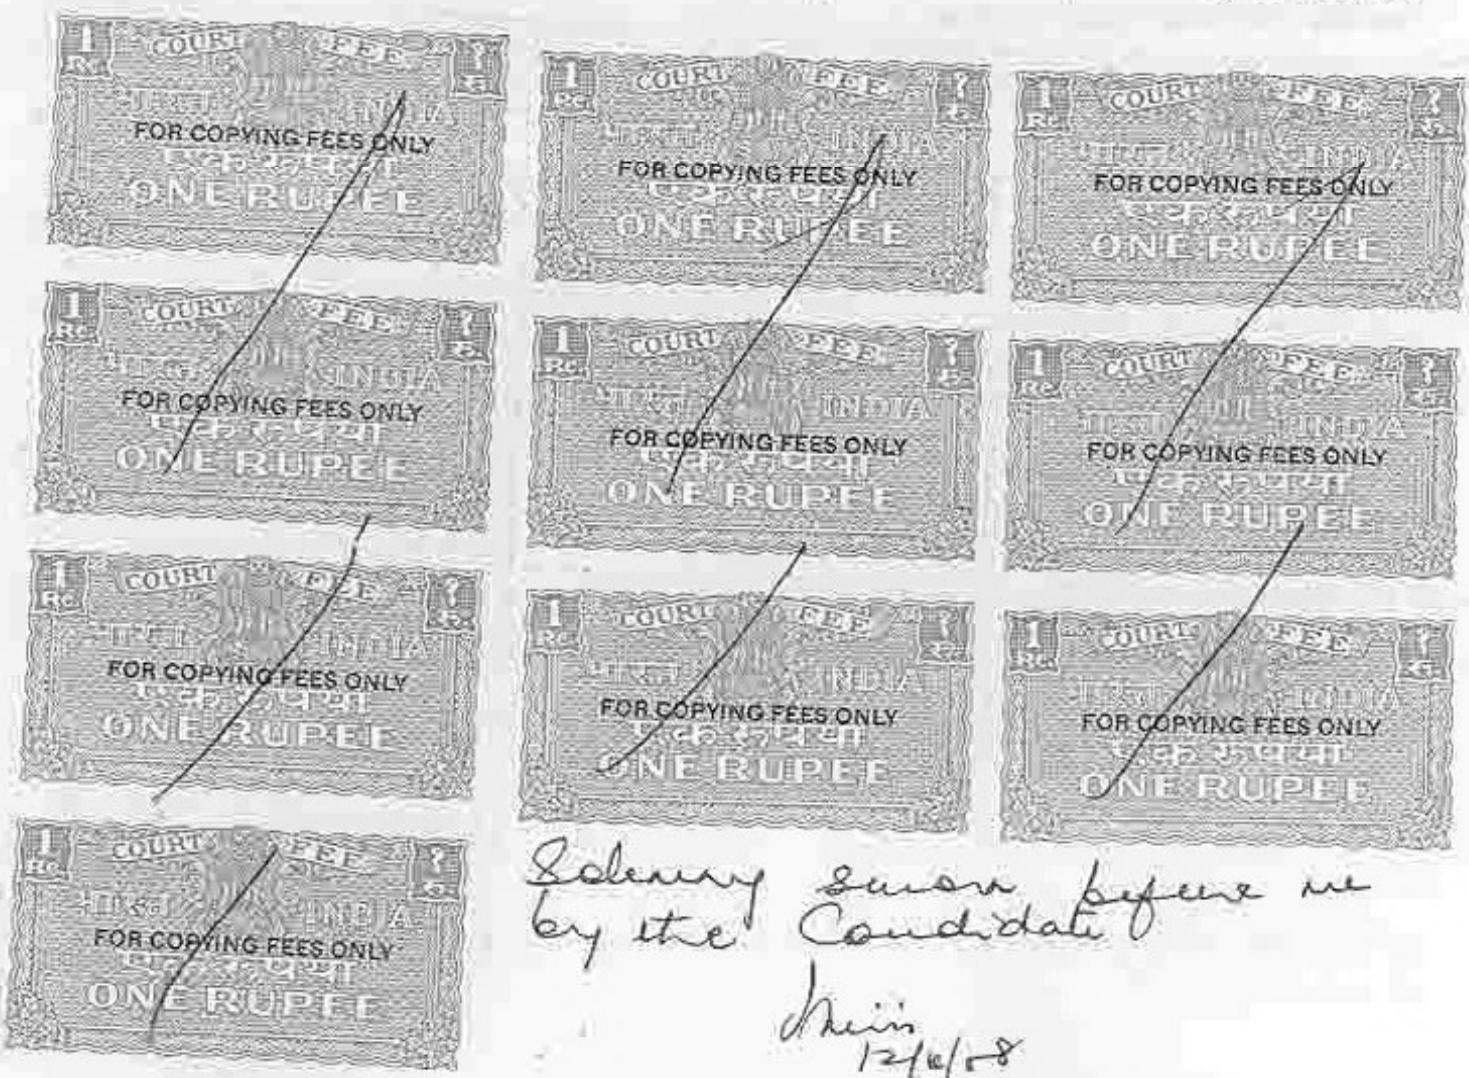 1 Re. COURT FEE १ रु.
भारत INDIA
FOR COPYING FEES ONLY
एक रुपया
ONE RUPEE
1 Re. COURT FEE १ रु.
भारत INDIA
FOR COPYING FEES ONLY
एक रुपया
ONE RUPEE
1 Re. COURT FEE १ रु.
भारत INDIA
FOR COPYING FEES ONLY
एक रुपया
ONE RUPEE
1 Re. COURT FEE १ रु.
भारत INDIA
FOR COPYING FEES ONLY
एक रुपया
ONE RUPEE
1 Re. COURT FEE १ रु.
भारत INDIA
FOR COPYING FEES ONLY
एक रुपया
ONE RUPEE
1 Re. COURT FEE १ रु.
भारत INDIA
FOR COPYING FEES ONLY
एक रुपया
ONE RUPEE
1 Re. COURT FEE १ रु.
भारत INDIA
FOR COPYING FEES ONLY
एक रुपया
ONE RUPEE
1 Re. COURT FEE १ रु.
भारत INDIA
FOR COPYING FEES ONLY
एक रुपया
ONE RUPEE
1 Re. COURT FEE १ रु.
भारत INDIA
FOR COPYING FEES ONLY
एक रुपया
ONE RUPEE
1 Re. COURT FEE १ रु.
भारत INDIA
FOR COPYING FEES ONLY
एक रुपया
ONE RUPEE
sworn before me
by the Candidate